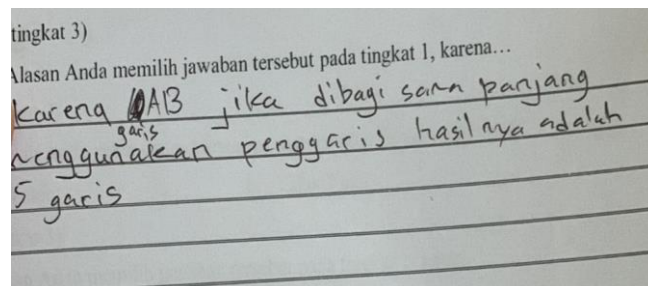 tingkat 3)
Alasan Anda memilih jawaban tersebut pada tingkat 1, karena...
Karena AB jika dibagi sama panjang
garis
menggunakan penggaris hasilnya adalah
5 garis